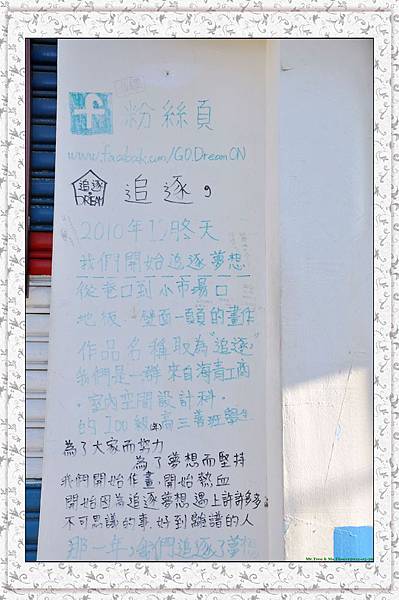 f 粉絲頁
www.facebook.com/GO.Dream.CN
追逐 DREAM 追逐,
2010年12月冬天
我們開始追逐夢想
從巷口到小市場口
地板、壁面一頭頭的畫作
作品名稱取為"追逐"
我們是一群來自海青工商
室內空間設計科
的100級(年)高三善班學生
為了大家而努力
為了夢想而堅持
我們開始作畫,開始熱血
開始因為追逐夢想,遇上許許多多
不可思議的事,好到離譜的人
那一年,我們追逐了夢想